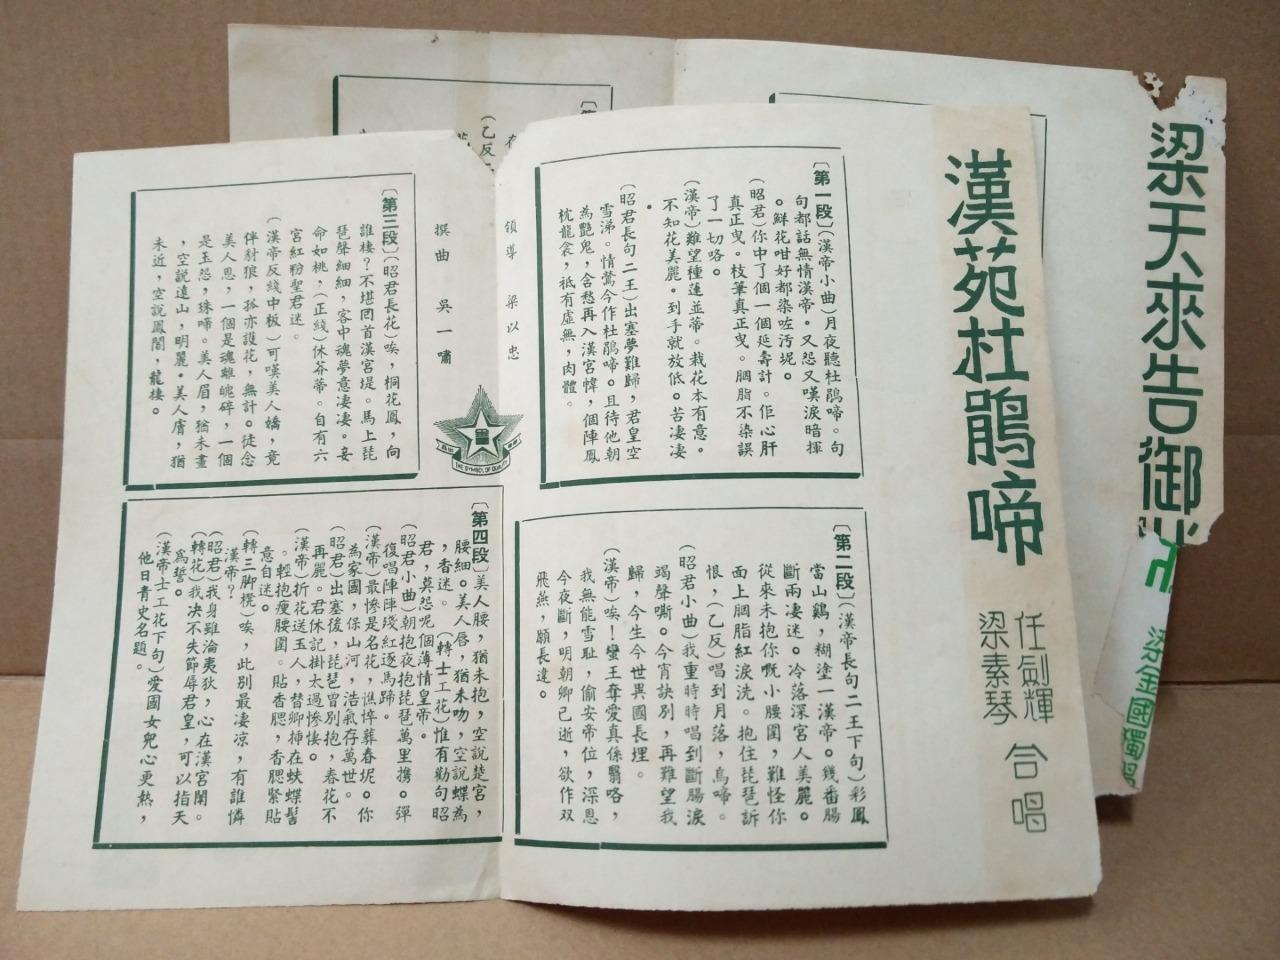 漢苑杜鵑啼
任劍輝
梁素琴
合唱
〔第一段〕(漢帝小曲)月夜聽杜鵑啼。句
句都話無情漢帝。又怨又嘆淚暗揮
。鮮花咁好都染咗污坭。
(昭君)你中了個一個延壽計。佢心肝
真正曳。枝筆真正曳。胭脂不染誤
了一切咯。
(漢帝)難望種蓮並蒂。栽花本有意。
不知花美麗。到手就放低。苦凄凄
。
(昭君長句二王)出塞夢難歸,君皇空
雪涕。情鶯今作杜鵑啼。且待他朝
為艷鬼,含愁再入漢宮幃,個陣鳳
枕龍衾,祗有虛無,肉體。
〔第二段〕(漢帝長句二王下句)彩鳳
當山鷄,糊塗一漢帝。幾番腸
斷兩凄迷。冷落深宮人美麗。
從來未抱你嘅小腰圍,難怪你
面上胭脂紅淚洗。抱住琵琶訴
恨,(乙反)唱到月落,烏啼。
(昭君小曲)我重時時唱到斷腸淚
竭聲嘶。今宵訣別,再難望我
歸,今生今世異國長埋。
(漢帝)唉!蠻王奪愛真係翳咯,
我無能雪耻,偷安帝位,深恩
今夜斷,明朝卿已逝,欲作双
飛燕,願長違。
領導 梁以忠
撰曲 吳一嘯
THE SYMBOL OF QUALITY
〔第三段〕(昭君長花)唉,桐花鳳,向
誰棲?不堪回首漢宮堤。馬上琵
琶聲細細,客中魂夢意凄凄。妾
命如桃,(正綫)休芬蒂。自有六
宮紅粉聖君迷。
(漢帝反綫中板)可嘆美人嬌,竟
伴豺狼,孤亦護花,無計。徒念
美人恩,一個是魂離魄碎,一個
是玉怨,珠啼。美人眉,猶未畫
,空說遠山,明麗。美人膚,猶
未近,空說鳳閣,龍樓。
〔第四段〕美人腰,猶未抱,空說楚宮,
腰細。美人唇,猶未吻,空說蝶為
,香迷。(轉士工花)惟有勸句昭
君,莫怨呢個薄情皇帝。
(昭君小曲)朝抱夜抱琵琶萬里携。彈
復唱陣陣殘紅逐馬蹄。
(漢帝)最慘是名花,憔悴葬春坭。你
為家國,保山河,浩氣存萬世。
(昭君)出塞後,琵琶曾別抱,春花不
再麗。君休記掛太過慘悽。
(漢帝)折花送玉人,替卿揷在蚨蝶髻
。輕抱瘦腰圍。貼香腮,香腮緊貼
意自迷。
(轉三脚櫈)唉,此別最凄凉,有誰憐
漢帝?
(昭君)我身雖淪夷狄,心在漢宮閨。
(轉花)我決不失節辱君皇,可以指天
為誓。
(漢帝士工花下句)愛國女兒心更熱,
他日青史名題。
梁天來告御
梁金國獨
(乙反